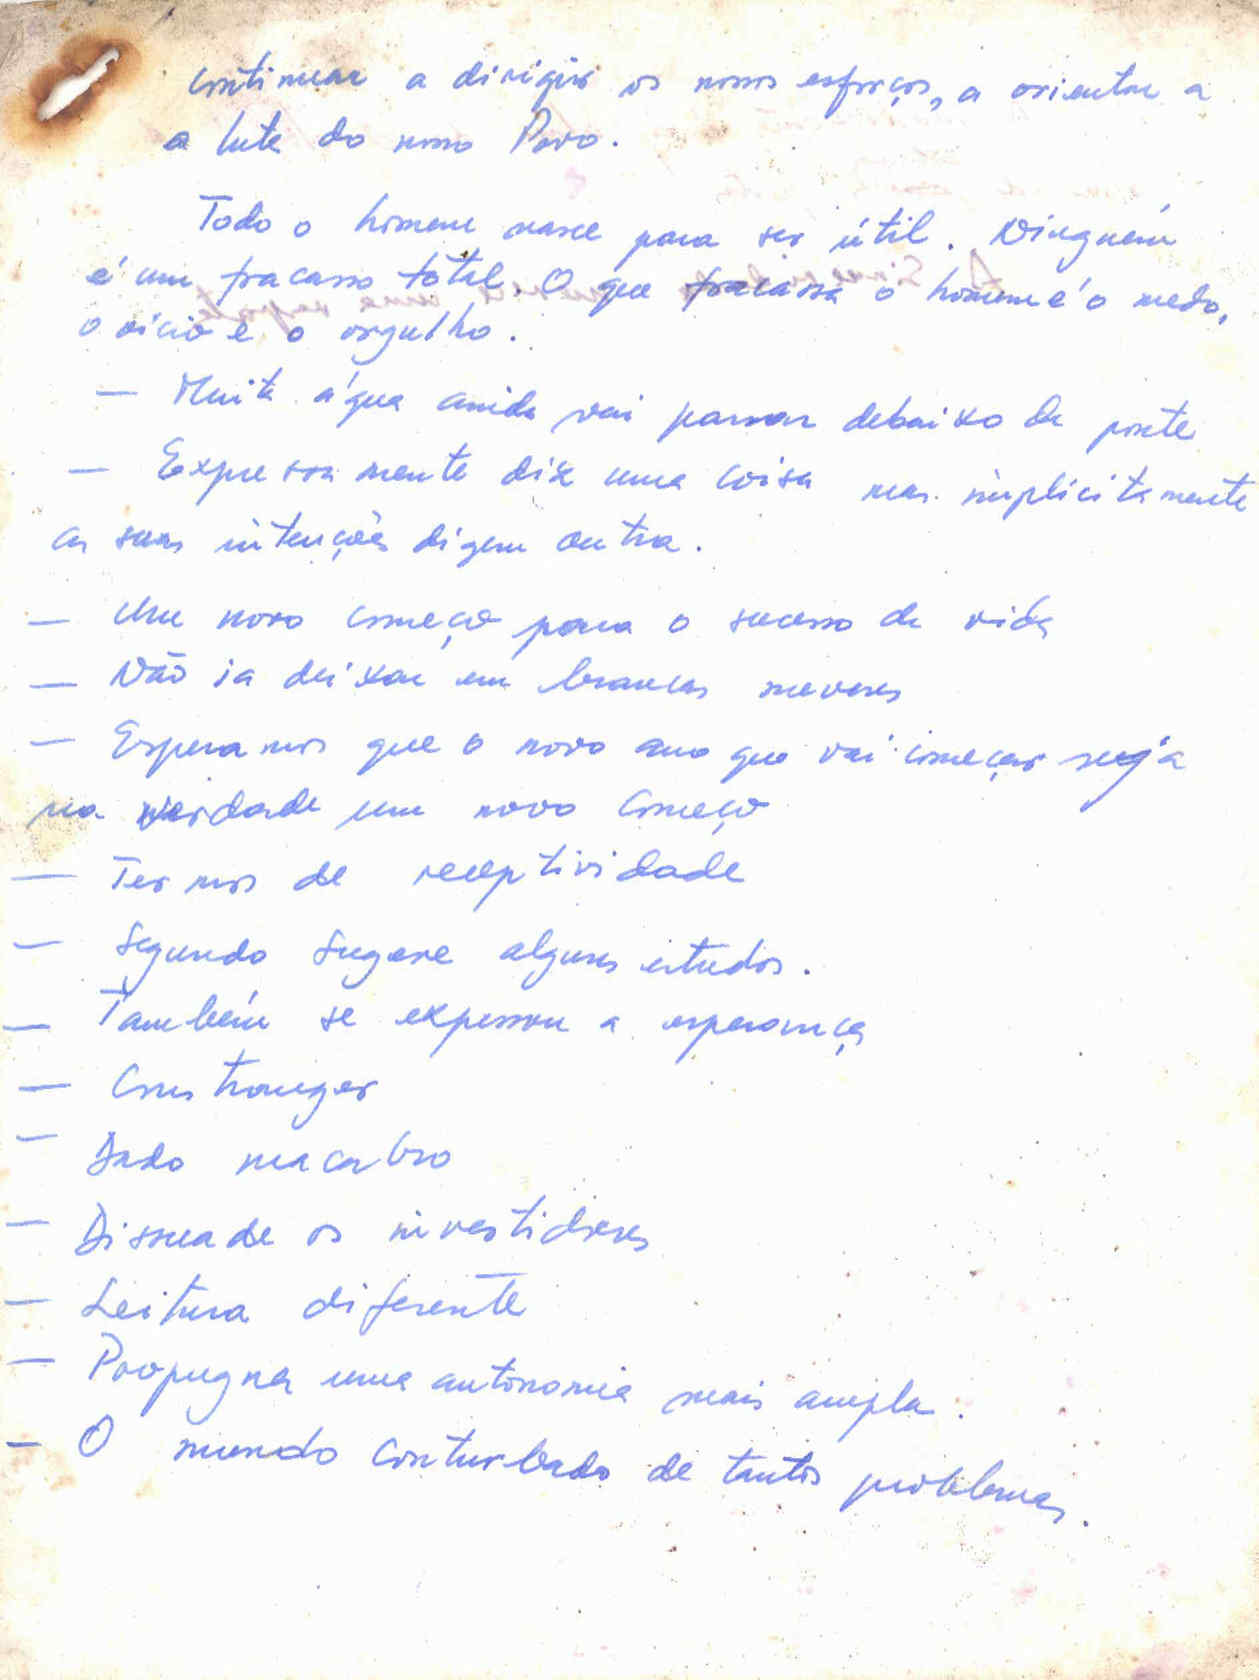 continuar a dirigir os nossos esforços, a orientar a
a luta do nosso Povo.
Todo o homem nasce para ser útil. Ninguém
é um fracasso total. O que fracassa o homem é o medo,
o vício e o orgulho.
— Muita água ainda vai passar debaixo da ponte
— Expressamente diz uma coisa mas implicitamente
as suas intenções dizem outra.
— Um novo começo para o sucesso da vida
— Não ia deixar em brancas nuvens
— Esperamos que o novo ano que vai começar seja
na verdade um novo começo
— Termos de receptividade
— Segundo sugere alguns estudos.
— Também se expressou a esperança
— Constranger
— Dado macabro
— Dissuade os investidores
— Leitura diferente
— Propugnar uma autonomia mais ampla.
— O mundo conturbado de tantos problemas.